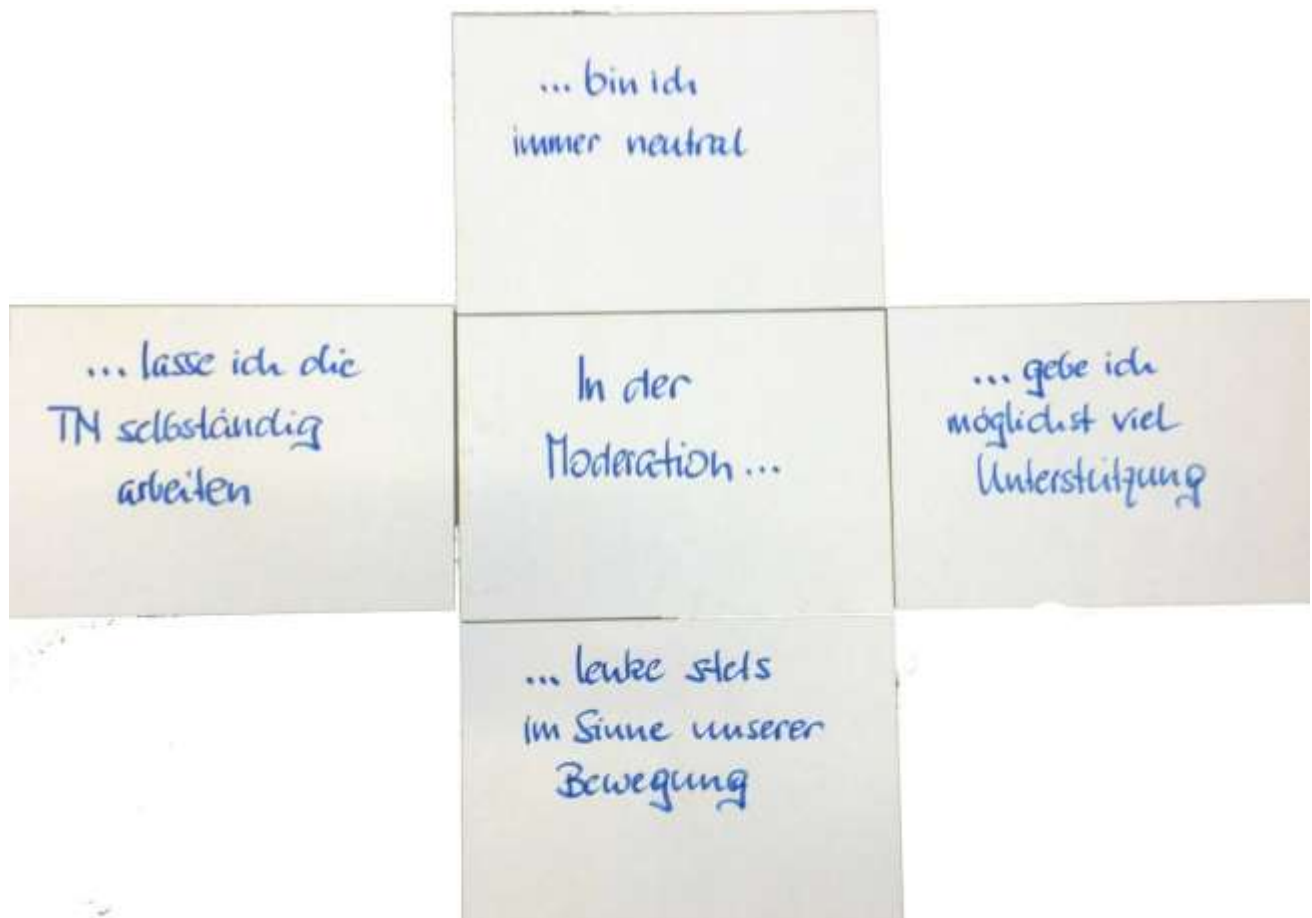 ... bin ich
immer neutral
... lasse ich die
TN selbständig
arbeiten
In der
Moderation...
... gebe ich
möglichst viel
Unterstützung
... lenke stets
im Sinne unserer
Bewegung